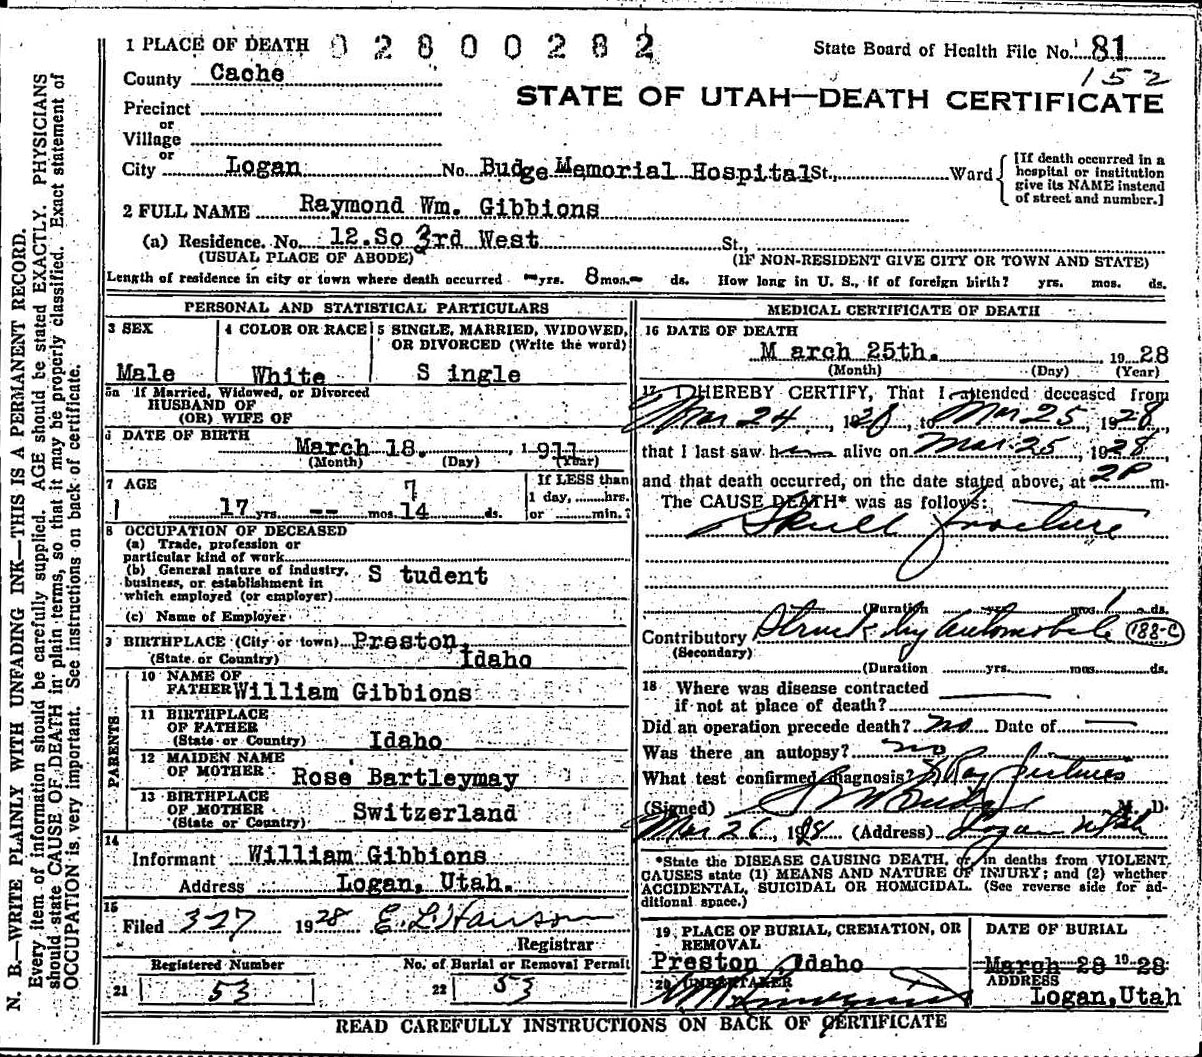 N. B.—WRITE PLAINLY WITH UNFADING INK—THIS IS A PERMANENT RECORD.
Every item of information should be carefully supplied. AGE should be stated EXACTLY. PHYSICIANS
should state CAUSE OF DEATH in plain terms, so that it may be properly classified. Exact statement of
OCCUPATION is very important. See instructions on back of certificate.
1 PLACE OF DEATH 02800282 State Board of Health File No. 81
County Cache 152
STATE OF UTAH—DEATH CERTIFICATE
Precinct
or
Village
or
City Logan No. Budge Memorial Hospital St., Ward
[If death occurred in a
hospital or institution
give its NAME instead
of street and number.]
2 FULL NAME Raymond Wm. Gibbions
(a) Residence. No. 12.So 3rd West St.,
(USUAL PLACE OF ABODE) (IF NON-RESIDENT GIVE CITY OR TOWN AND STATE)
Length of residence in city or town where death occurred - yrs. 8 mos. - ds. How long in U. S., if of foreign birth? yrs. mos. ds.
PERSONAL AND STATISTICAL PARTICULARS
3 SEX
Male
4 COLOR OR RACE
White
5 SINGLE, MARRIED, WIDOWED,
OR DIVORCED (Write the word)
S ingle
5a If Married, Widowed, or Divorced
HUSBAND OF
(OR) WIFE OF
6 DATE OF BIRTH
March 18. , 1911
(Month) (Day) (Year)
7 AGE 7
17 yrs. -- mos. 14 ds.
If LESS than
1 day, hrs.
or min.?
8 OCCUPATION OF DECEASED
(a) Trade, profession or
particular kind of work
(b) General nature of industry,
business, or establishment in S tudent
which employed (or employer)
(c) Name of Employer
9 BIRTHPLACE (City or town) Preston,
(State or Country) Idaho
PARENTS
10 NAME OF
FATHER William Gibbions
11 BIRTHPLACE
OF FATHER
(State or Country) Idaho
12 MAIDEN NAME
OF MOTHER Rose Bartleymay
13 BIRTHPLACE
OF MOTHER
(State or Country) Switzerland
14
Informant William Gibbions
Address Logan, Utah.
15
Filed 3-27 1928 E. L. Hanson
Registrar
Registered Number No. of Burial or Removal Permit
21 53 22 53
MEDICAL CERTIFICATE OF DEATH
16 DATE OF DEATH
M arch 25th. 1928
(Month) (Day) (Year)
17 I HEREBY CERTIFY, That I attended deceased from
Mar 24, 1928, to Mar 25, 1928,
that I last saw h alive on Mar 25, 1928,
and that death occurred, on the date stated above, at 2P m.
The CAUSE DEATH* was as follows:
Skull fracture
(Duration yrs. mos. 1 ds.
Contributory Struck by automobile 188-C
(Secondary)
(Duration yrs. mos. ds.
18 Where was disease contracted
if not at place of death?
Did an operation precede death? no Date of
Was there an autopsy? no
What test confirmed diagnosis? X Ray pictures
(Signed) M. D.
Mar 26, 1928 (Address) Logan Utah
*State the DISEASE CAUSING DEATH, or, in deaths from VIOLENT
CAUSES state (1) MEANS AND NATURE OF INJURY; and (2) whether
ACCIDENTAL, SUICIDAL OR HOMICIDAL. (See reverse side for ad-
ditional space.)
19 PLACE OF BURIAL, CREMATION, OR
REMOVAL
Preston, Idaho
DATE OF BURIAL
March 28 1928
20 UNDERTAKER
ADDRESS
Logan,Utah
READ CAREFULLY INSTRUCTIONS ON BACK OF CERTIFICATE